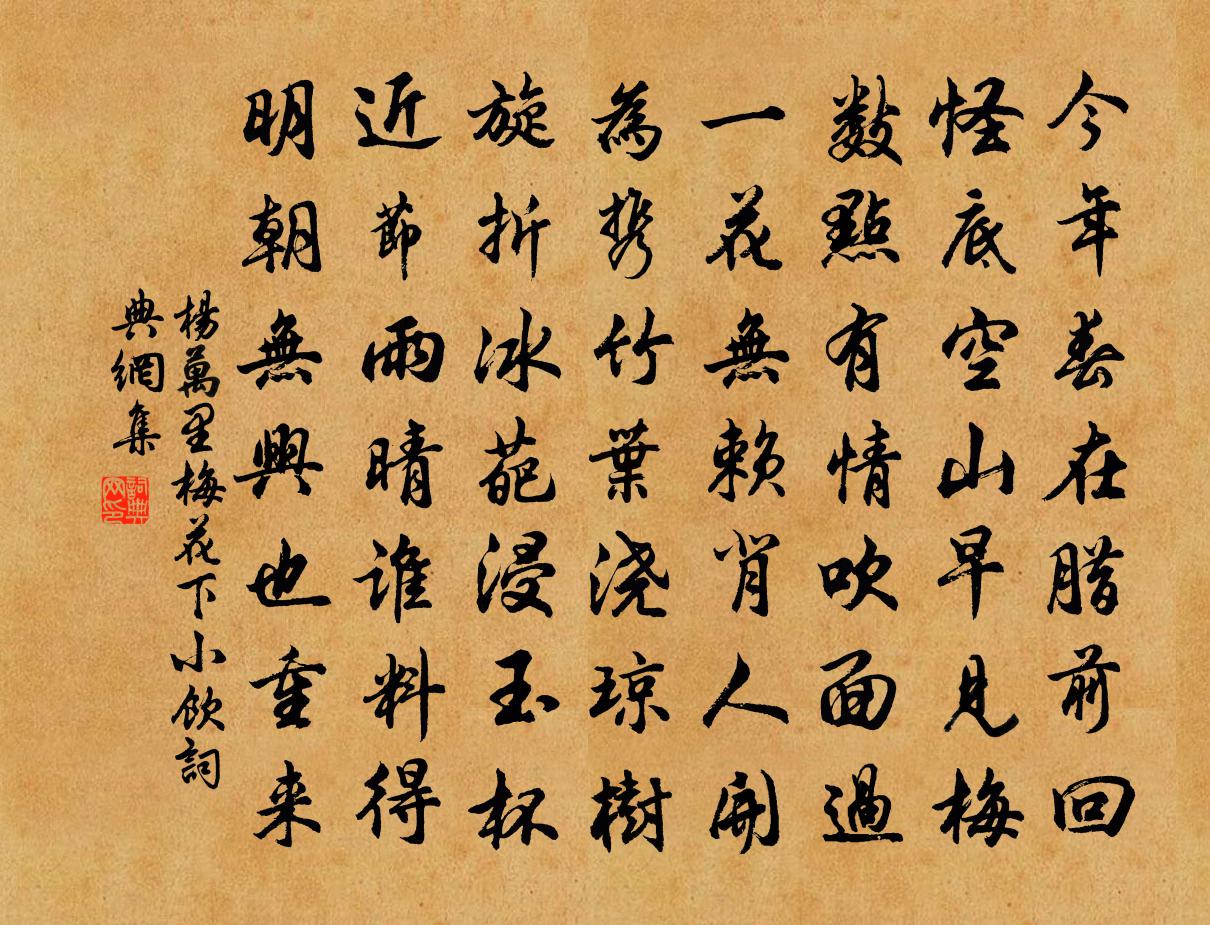 今年春在腊前回
怪底空山早見梅
数點有情吹面過
一花無赖背人開
為携竹葉浇琼樹
旋折冰葩浸玉杯
近節雨晴谁料得
明朝無興也重来
楊萬里梅花下小飲詞
典網集
詞典
网印